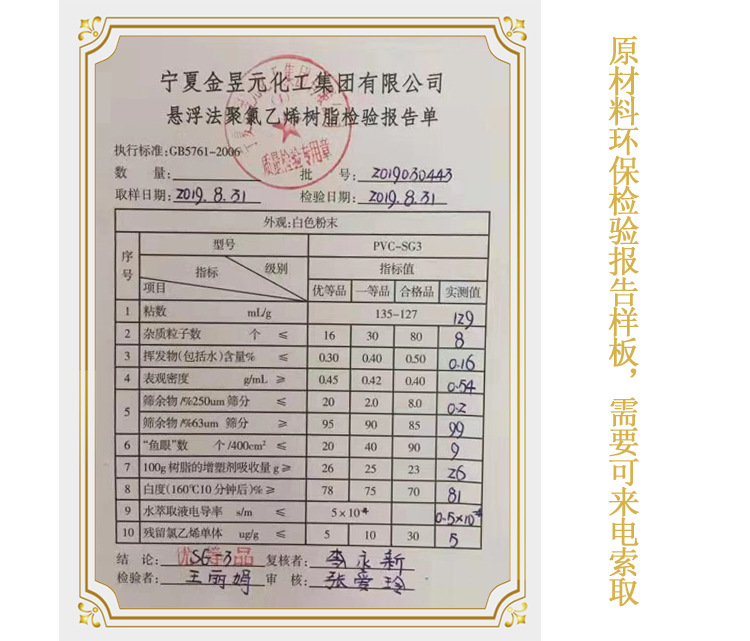 宁夏金昱元化工集团有限公司
悬浮法聚氯乙烯树脂检验报告单
质量检验专用章
执行标准:GB5761-2006
数 量: 批 号: 2019030443
取样日期: 2019.8.31 检验日期: 2019.8.31
外观:白色粉末
序号 型号 PVC-SG3
指标 级别 项目 指标值
优等品 一等品 合格品 实测值
1 粘数 mL/g 135-127 129
2 杂质粒子数 个 ≤ 16 30 80 8
3 挥发物(包括水)含量% ≤ 0.30 0.40 0.50 0.16
4 表观密度 g/mL ≥ 0.45 0.42 0.40 0.54
5 筛余物/%250um 筛分 ≤ 20 2.0 8.0 0.2
筛余物/%63um 筛分 ≥ 95 90 85 99
6 “鱼眼”数 个/400cm² ≤ 20 40 90 9
7 100g 树脂的增塑剂吸收量 g≥ 26 25 23 26
8 白度(160℃10分钟后)%≥ 78 75 70 81
9 水萃取液电导率 s/m ≤ 5×10⁻⁴ 0.5×10⁻⁴
10 残留氯乙烯单体 ug/g ≤ 5 10 30 5
结 论: 优等品 SG-3 复核者: 李永新
检验者: 王丽娟 审 核: 张爱玲
原材料环保检验报告样板，需要可来电索取